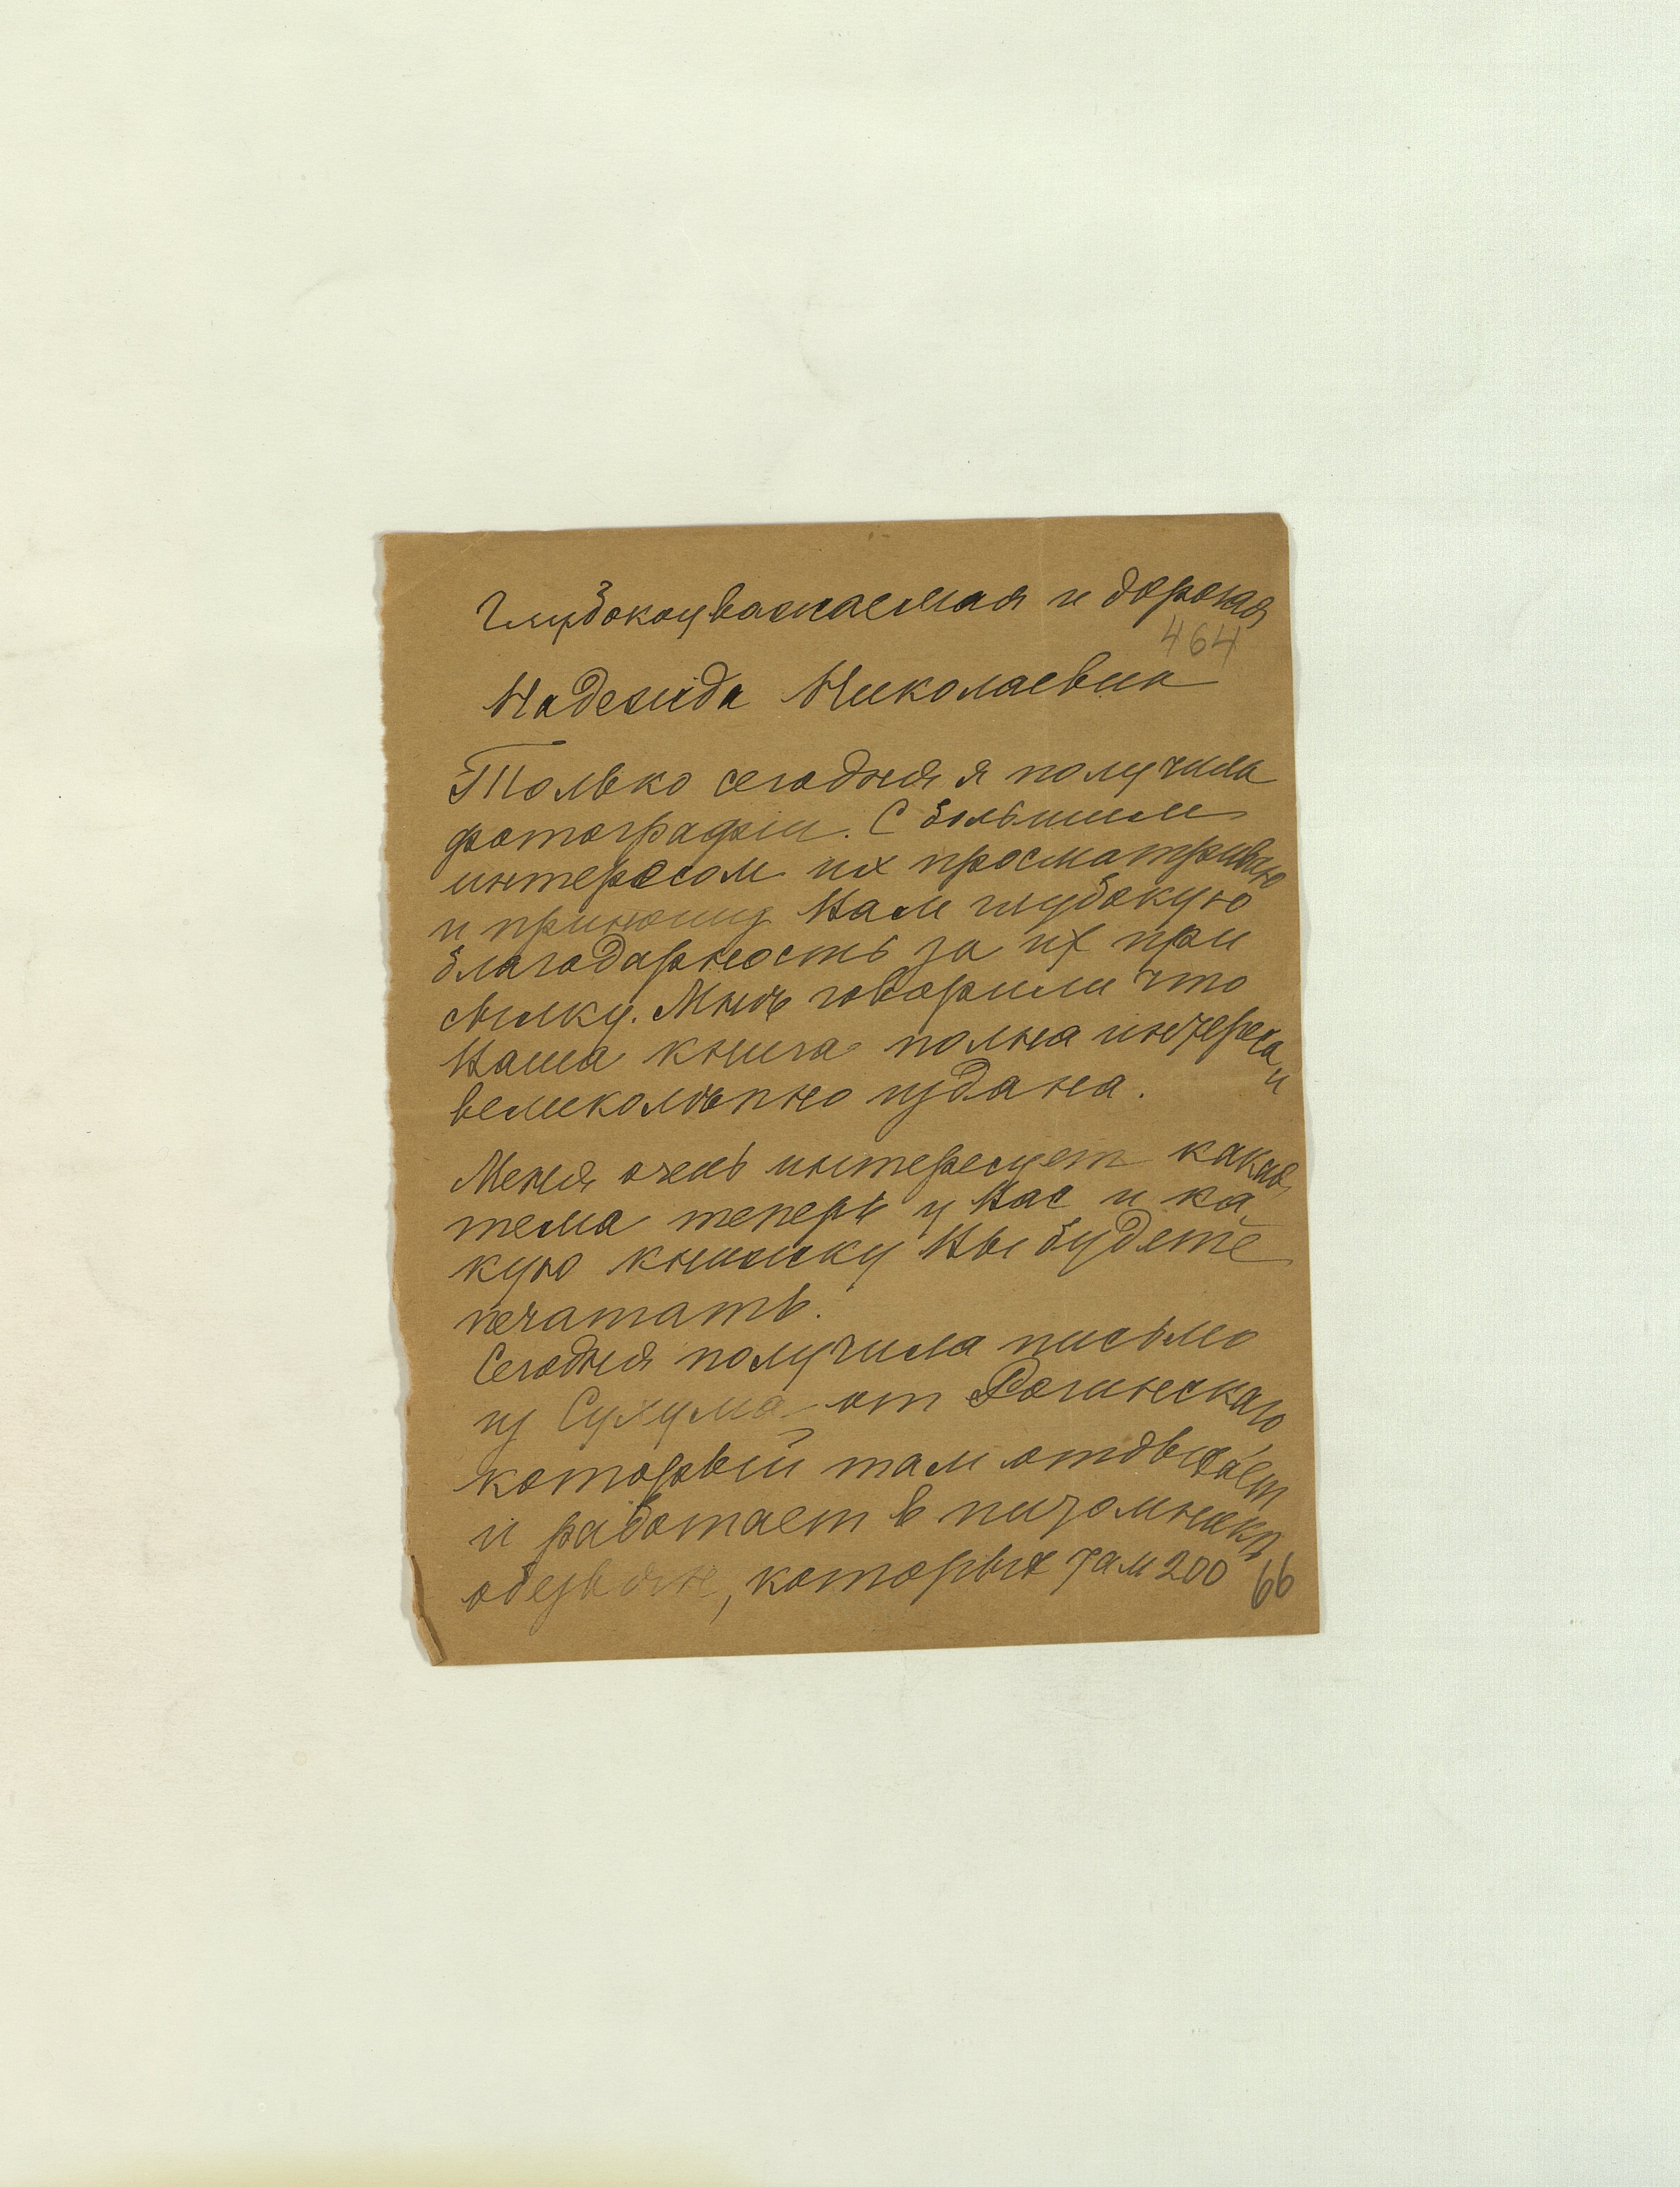 Глубокоуважаемая и дорогая
464
Надежда Николаевна
Только сегодня я получила
фотографии. С большим
интересом их просматриваю
и приношу Вам глубокую
благодарность за их при
сылку. Мнѣ говорили что
Ваша книга полна интереса и
великолѣпно издана.
Меня очень интересует какая
тема теперь у Вас и ка
кую книжку Вы будете
печатать.
Сегодня получила письмо
из Сухума от Рогинскаго,
который там отдыхает
и работает в питомникѣ
обезьян, которых там 200
66